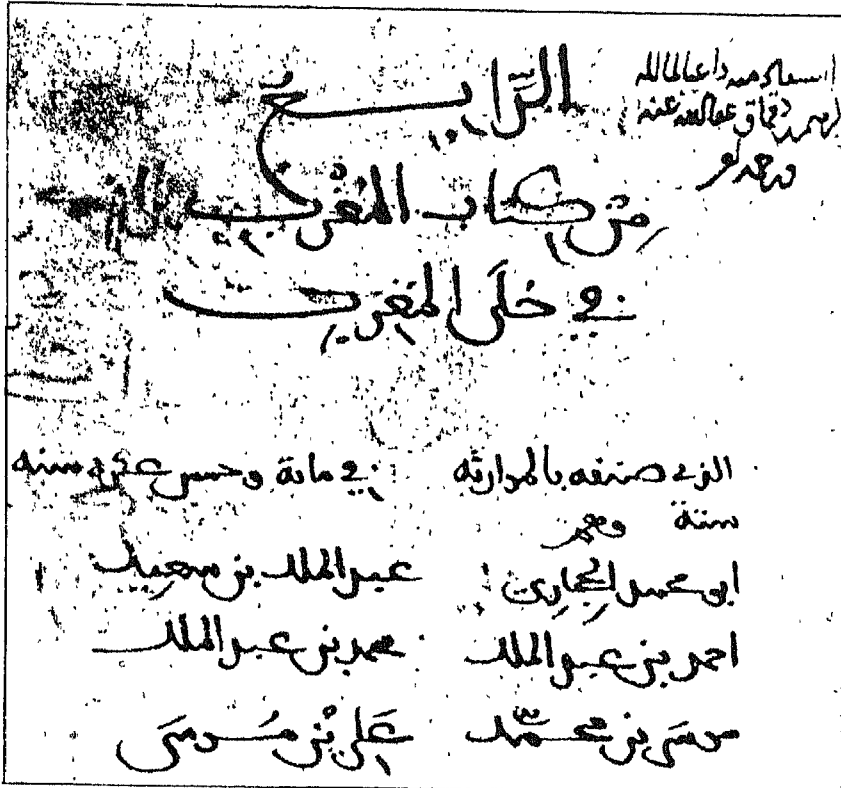 الرَّابِعُ
مِن كتاب المُغْرِب
في حُلَى المَغرِب
الذي صنفه بالموارثه في مائة وخمس عشرة سنه
سنة وهم
ابو محمد الحِجَارِي عبد الملك بن سعيد
احمد بن عبد الملك محمد بن عبد الملك
موسى بن محمّد عَلِي بْن مُوسَى